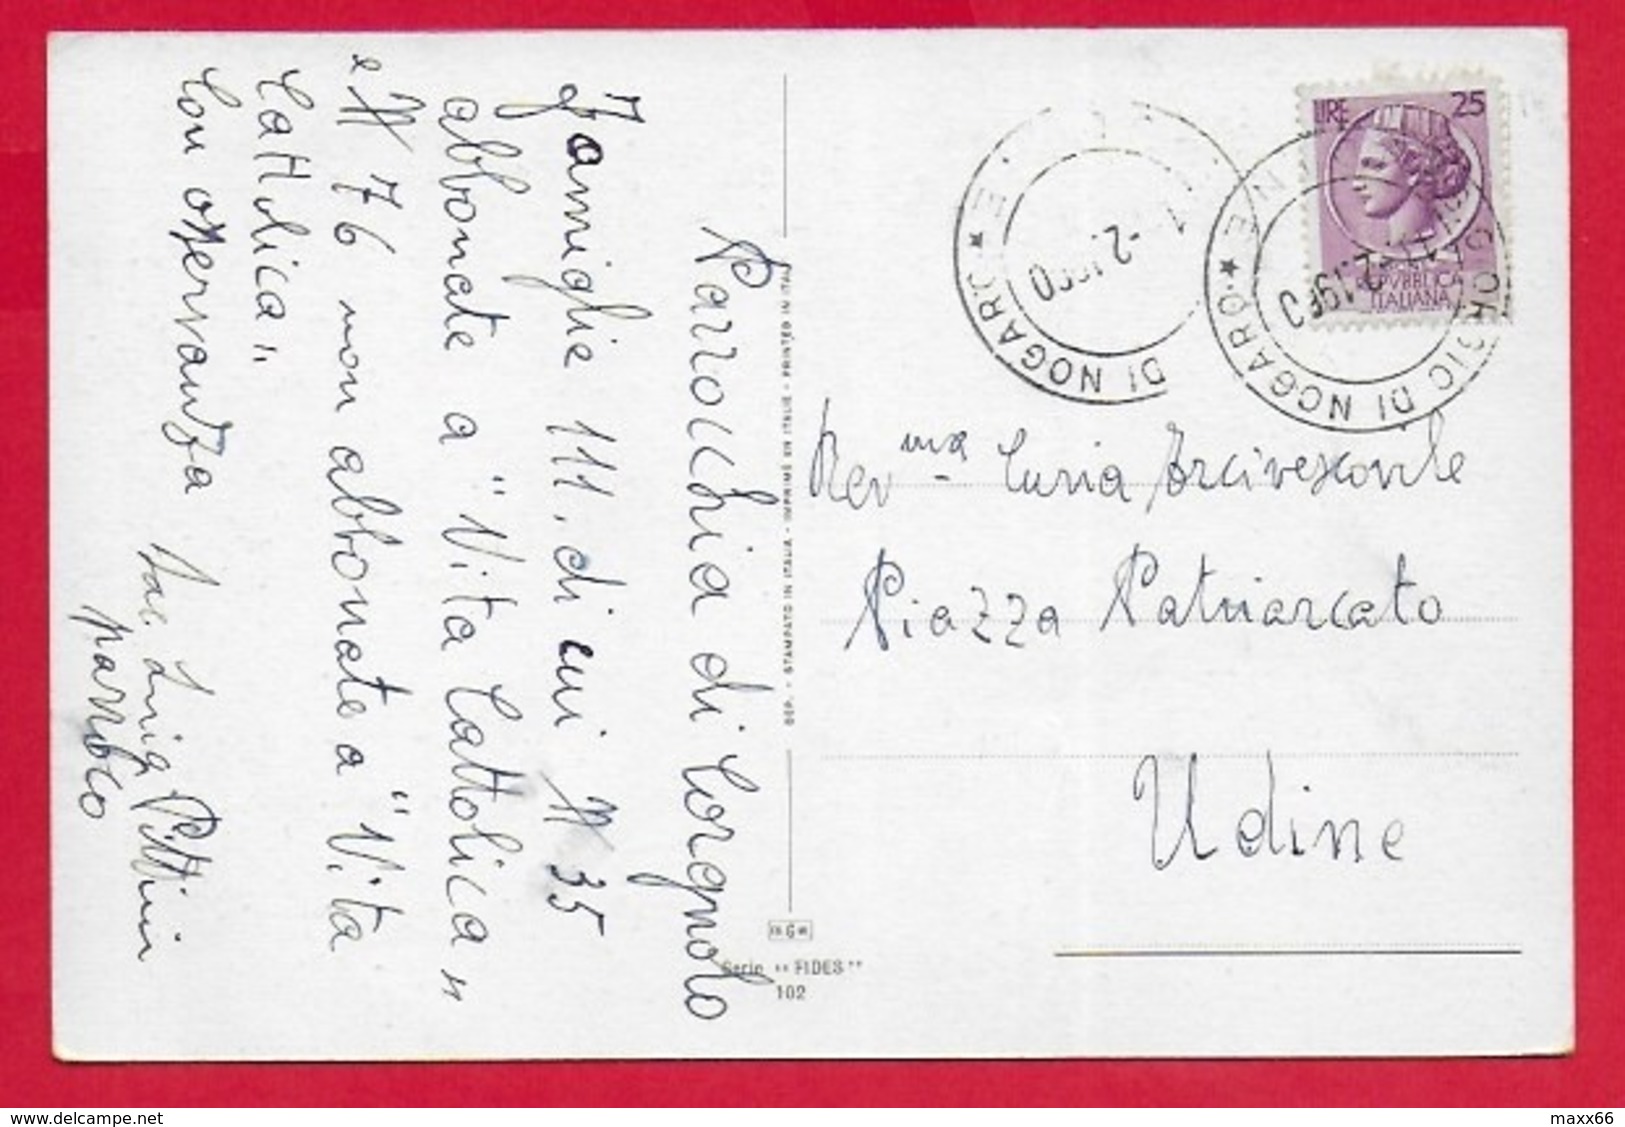 Parrocchia di Corgnolo
Famiglie 111. di cui N 35
abbonate a "Vita Cattolica"
e N 76 non abbonate a "Vita
Cattolica".
Con osservanza
Sac. Luigi Pittini
parroco
LIRE 25
REPVBBLICA
ITALIANA
DI NOGARO
S. GIORGIO DI NOGARO * UDINE
Revma Curia Arcivescovile
Piazza Patriarcato
Udine
DEP. - STAMPATO IN ITALIA - IMPRIMÉ EN ITALIE - PRINTED IN ITALY
G
Serie "FIDES"
102
www.delcampe.net
maxx66